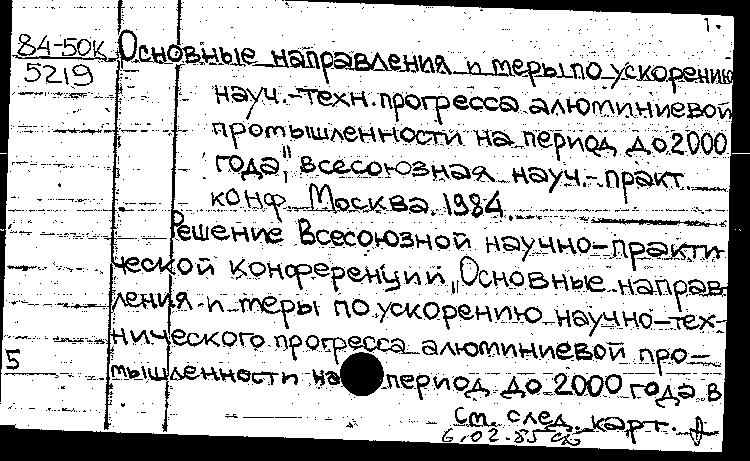 1.
84-50К Основные направления и меры по ускорению
5219
науч.-техн. прогресса алюминиевой
промышленности на период до 2000
года", всесоюзная науч.-практ.
конф. Москва. 1984.
Решение Всесоюзной научно-практи
ческой конференции „Основные направ
ления и меры по ускорению научно-тех-
нического прогресса алюминиевой про-
5
мышленности на период до 2000 года в
см. след. карт.
6.02.85